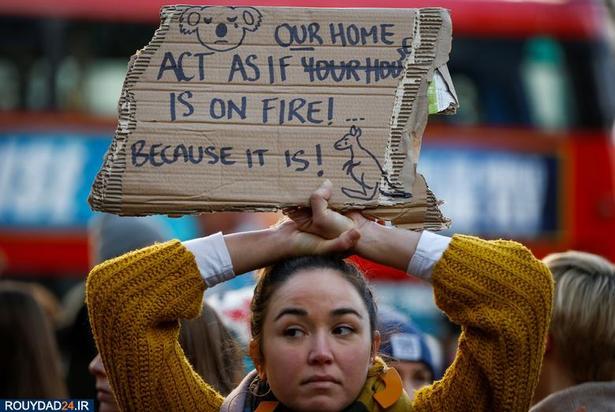 OUR HOME
ACT AS IF YOUR HOUSE
IS ON FIRE!...
BECAUSE IT IS!
ROUYDAD24.IR